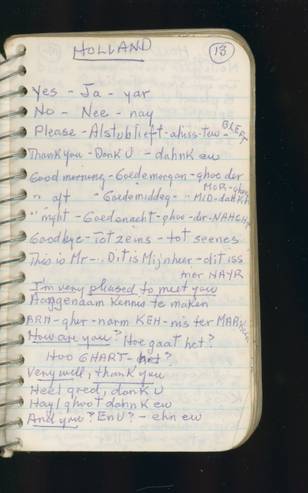 HOLLAND
13
Yes - Ja - yar
No - Nee - nay
Please - Alstublieft - ahiss-tew-BLEFT
Thank you - Dank U - dahnk ew
Good morning - Goedemorgan - ghoe der
MOR-ghen
" aft " Goedemiddag - MID-dahkh
" night - Goedonacht - ghoe-der-NAHGHT
Goodbye - Tot zeins - tot seenes
This is Mr - Dit is Mijnheer - dit iss
mer NAYR
I'm very pleased to meet you
Aanggenaam kennis te maken
ARH-gher-narm KEH-nis ter MAR
How are you? Hoe gaat het?
HOO GHART-het?
Very well, thank you
Heel goed, dank U
Hayl ghoot dahnk ew
And you? En U? - ehn ew